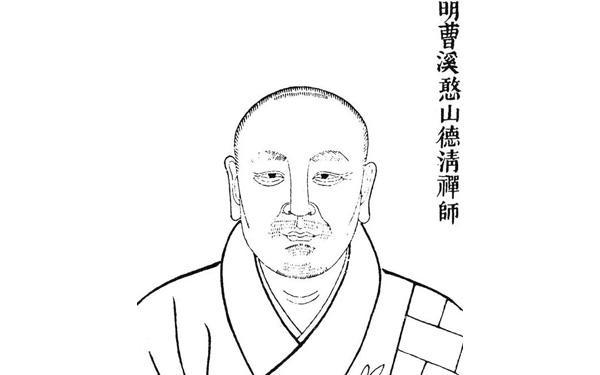 明曹溪憨山德清禪師